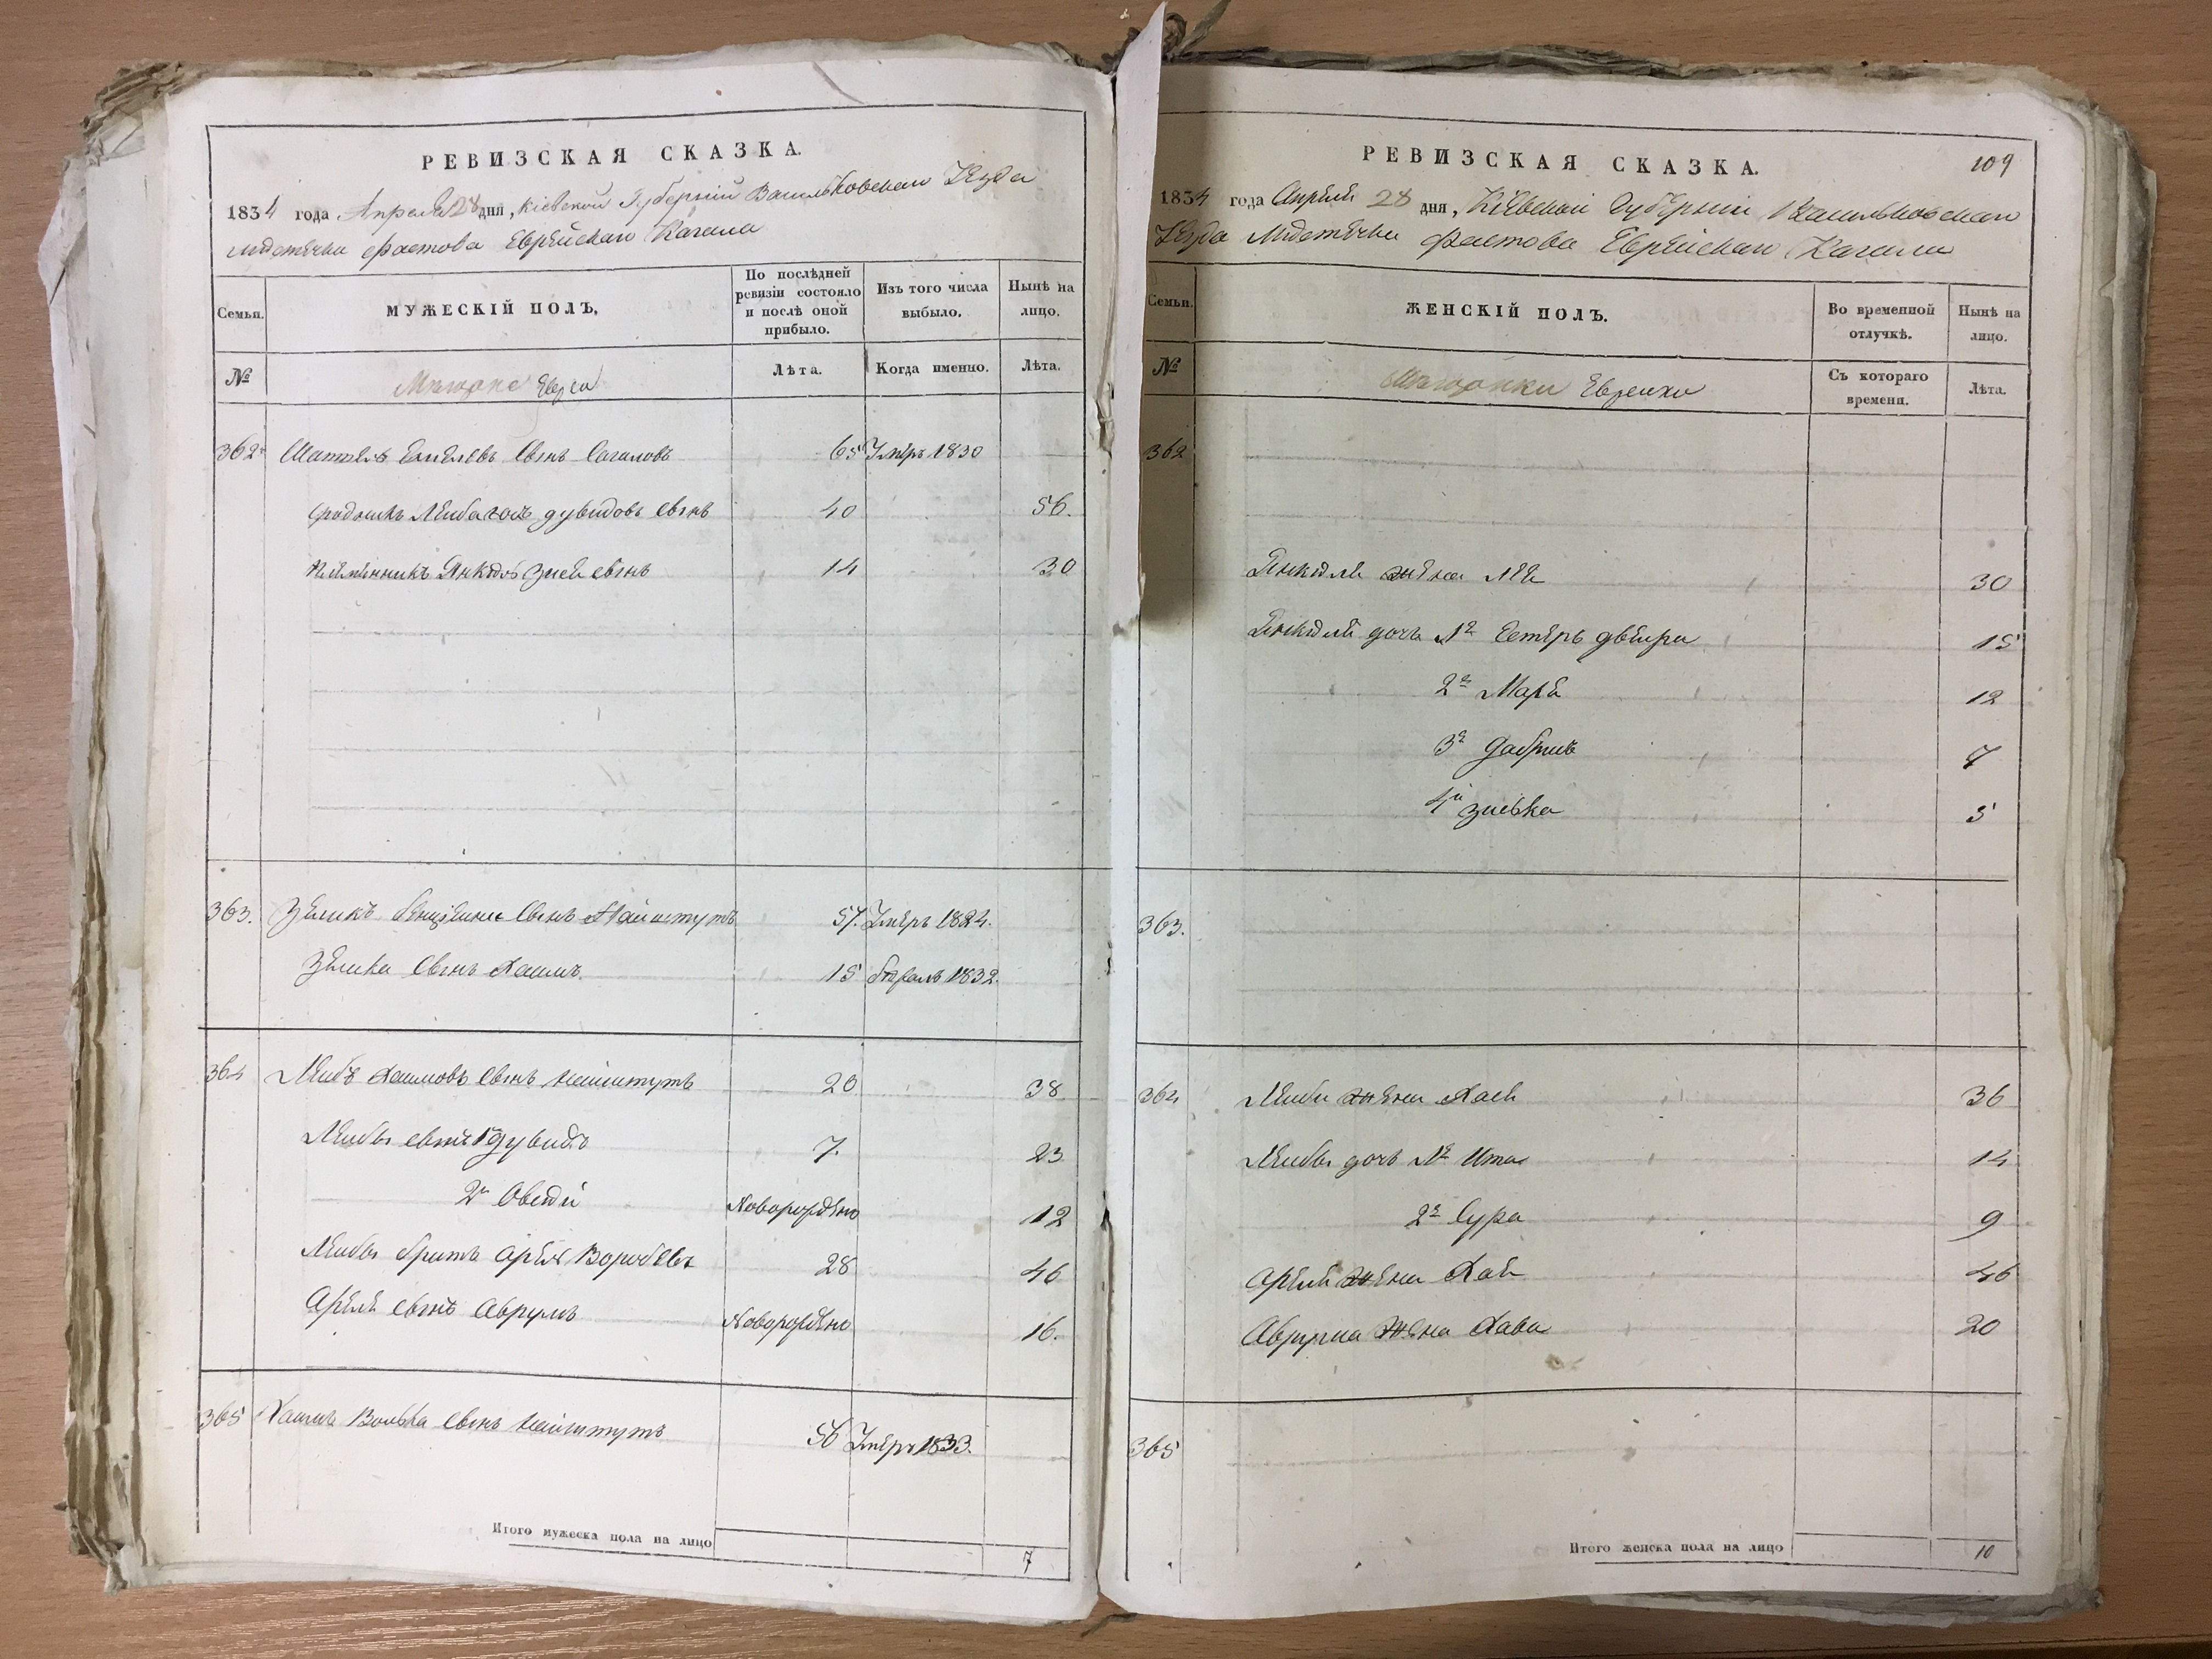 РЕВИЗСКАЯ СКАЗКА.
1834 года Апреля 28 дня, Кіевской Губерніи Васильковскаго Уезда
Местечка Фастова Еврейскаго Кагала
Семьи.
МУЖЕСКІЙ ПОЛЪ,
По послѣдней
ревизіи состояло
и послѣ оной
прибыло.
Изъ того числа
выбыло.
Нынѣ на
лицо.
№
Мещане Евреи
Лѣта.
Когда именно.
Лѣта.
362 сынъ 65 Умеръ 1830
Дувидовъ сынъ 40 56.
племянникъ Янкель сынъ 14 30
363. Зеликъ сынъ 57. Умеръ 1824.
Зелика сынъ Хаимъ 15 1832.
364 Лейба Хаимовъ сынъ Найштутъ 20 38
Лейбы сынъ 1й Дувидъ 7. 23
2й Овсей Новорожденъ 12
Лейбы братъ Арел Воробевъ 28 46
Ареля сынъ Аврумъ Новорожденъ 16.
365 Хаимъ Волька сынъ Найштутъ 56 Умеръ 1833.
Итого мужеска пола на лицо
7
РЕВИЗСКАЯ СКАЗКА.
109
1834 года Апреля 28 дня, Кіевской Губерніи Васильковскаго
Уезда Местечка Фастова Еврейскаго Кагала
Семьи.
ЖЕНСКІЙ ПОЛЪ.
Во временной
отлучкѣ.
Нынѣ на
лицо.
№
Мещанки Еврейки
Съ котораго
времени.
Лѣта.
362
Янкеля жена Лея 30
Янкеля дочь 1я Естеръ Двейра 15
2я 12
3я 7
4я Зиська 5
363.
364 Лейбы жена Хася 36
Лейбы дочь 1я Ита 14
2я Сура 9
Ареля жена Хая 46
Аврума жена Хава 20
365
Итого женска пола на лицо
10